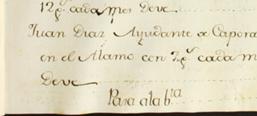 12p.s cada mes Deve
Juan Diaz Ayudante de Capora
en el Alamo con 7p.s cada m
Deve
Para a la b.ta